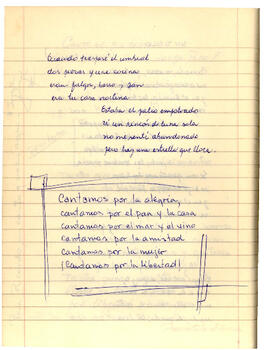 Cuando traspasé el umbral
dos piezas y una cocina
eran fulgor, barro y pan
era tu casa nortina
Estaba el patio empolvado
vi un rincón de luna sola
no me sentí abandonado
pero hay una estrella que llora.
Cantamos por la alegría,
cantamos por el pan y la casa
cantamos por el mar y el vino
cantamos por la amistad
cantamos por la mujer
¡Cantamos por la libertad!